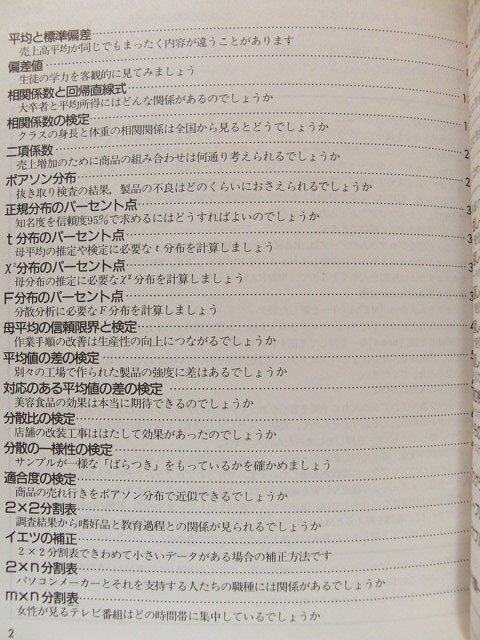 平均と標準偏差
売上高平均が同じでもまったく内容が違うことがあります
偏差値
生徒の学力を客観的に見てみましょう
相関係数と回帰直線式
大卒者と平均所得にはどんな関係があるのでしょうか
相関係数の検定
クラスの身長と体重の相関関係は全国から見るとどうでしょうか
二項係数
売上増加のために商品の組み合わせは何通り考えられるでしょうか
ポアソン分布
抜き取り検査の結果,製品の不良はどのくらいにおさえられるでしょうか
正規分布のパーセント点
知名度を信頼度95%で求めるにはどうすればよいのでしょうか
t分布のパーセント点
母平均の推定や検定に必要なt分布を計算しましょう
χ²分布のパーセント点
母分散の推定に必要なχ²分布を計算しましょう
F分布のパーセント点
分散分析に必要なF分布を計算しましょう
母平均の信頼限界と検定
作業手順の改善は生産性の向上につながるでしょうか
平均値の差の検定
別々の工場で作られた製品の強度に差はあるでしょうか
対応のある平均値の差の検定
美容食品の効果は本当に期待できるのでしょうか
分散比の検定
店舗の改装工事ははたして効果があったのでしょうか
分散の一様性の検定
サンプルが一様な「ばらつき」をもっているかを確かめましょう
適合度の検定
商品の売れ行きをポアソン分布で近似できるでしょうか
2×2分割表
調査結果から嗜好品と教育過程との関係が見られるでしょうか
イエツの補正
2×2分割表できわめて小さいデータがある場合の補正方法です
2×n分割表
パソコンメーカーとそれを支持する人たちの職種には関係があるでしょうか
m×n分割表
女性が見るテレビ番組はどの時間帯に集中しているでしょうか
2